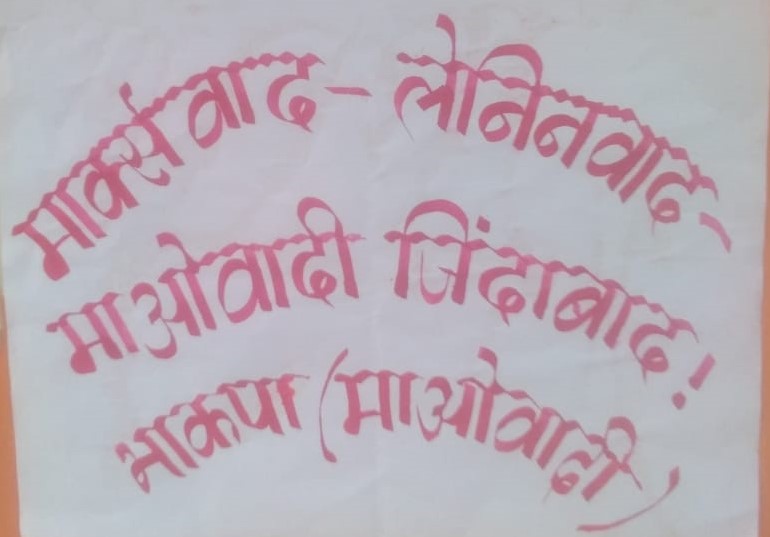 मार्क्सवाद - लेनिनवाद -
माओवादी जिंदाबाद !
भाकपा (माओवादी)